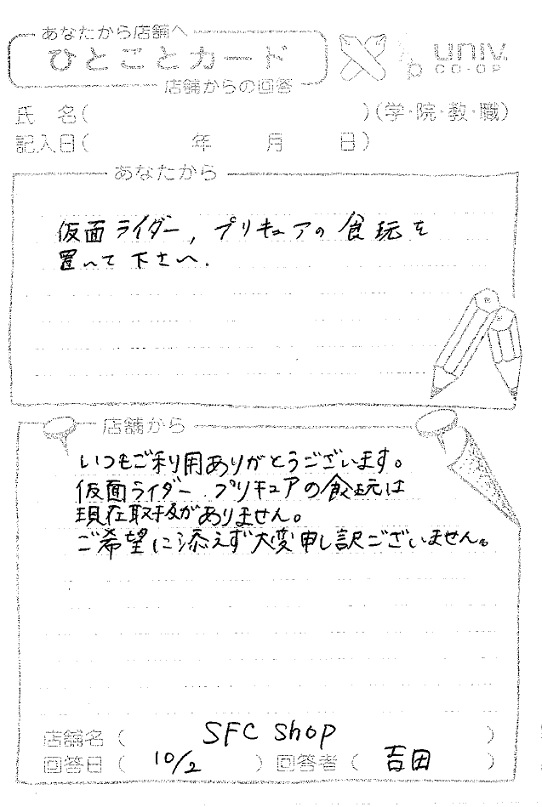 あなたから店舗へ
ひとことカード
店舗からの回答
univ.
CO-OP
氏 名( )(学・院・教・職)
記入日( 年 月 日)
あなたから
仮面ライダー, プリキュアの食玩を
置いて下さい.
店舗から
いつもご利用ありがとうございます。
仮面ライダー、プリキュアの食玩は
現在取扱がありません。
ご希望に添えず大変申し訳ございません。
店舗名( SFC Shop )
回答日( 10/2 )回答者( 吉田 )